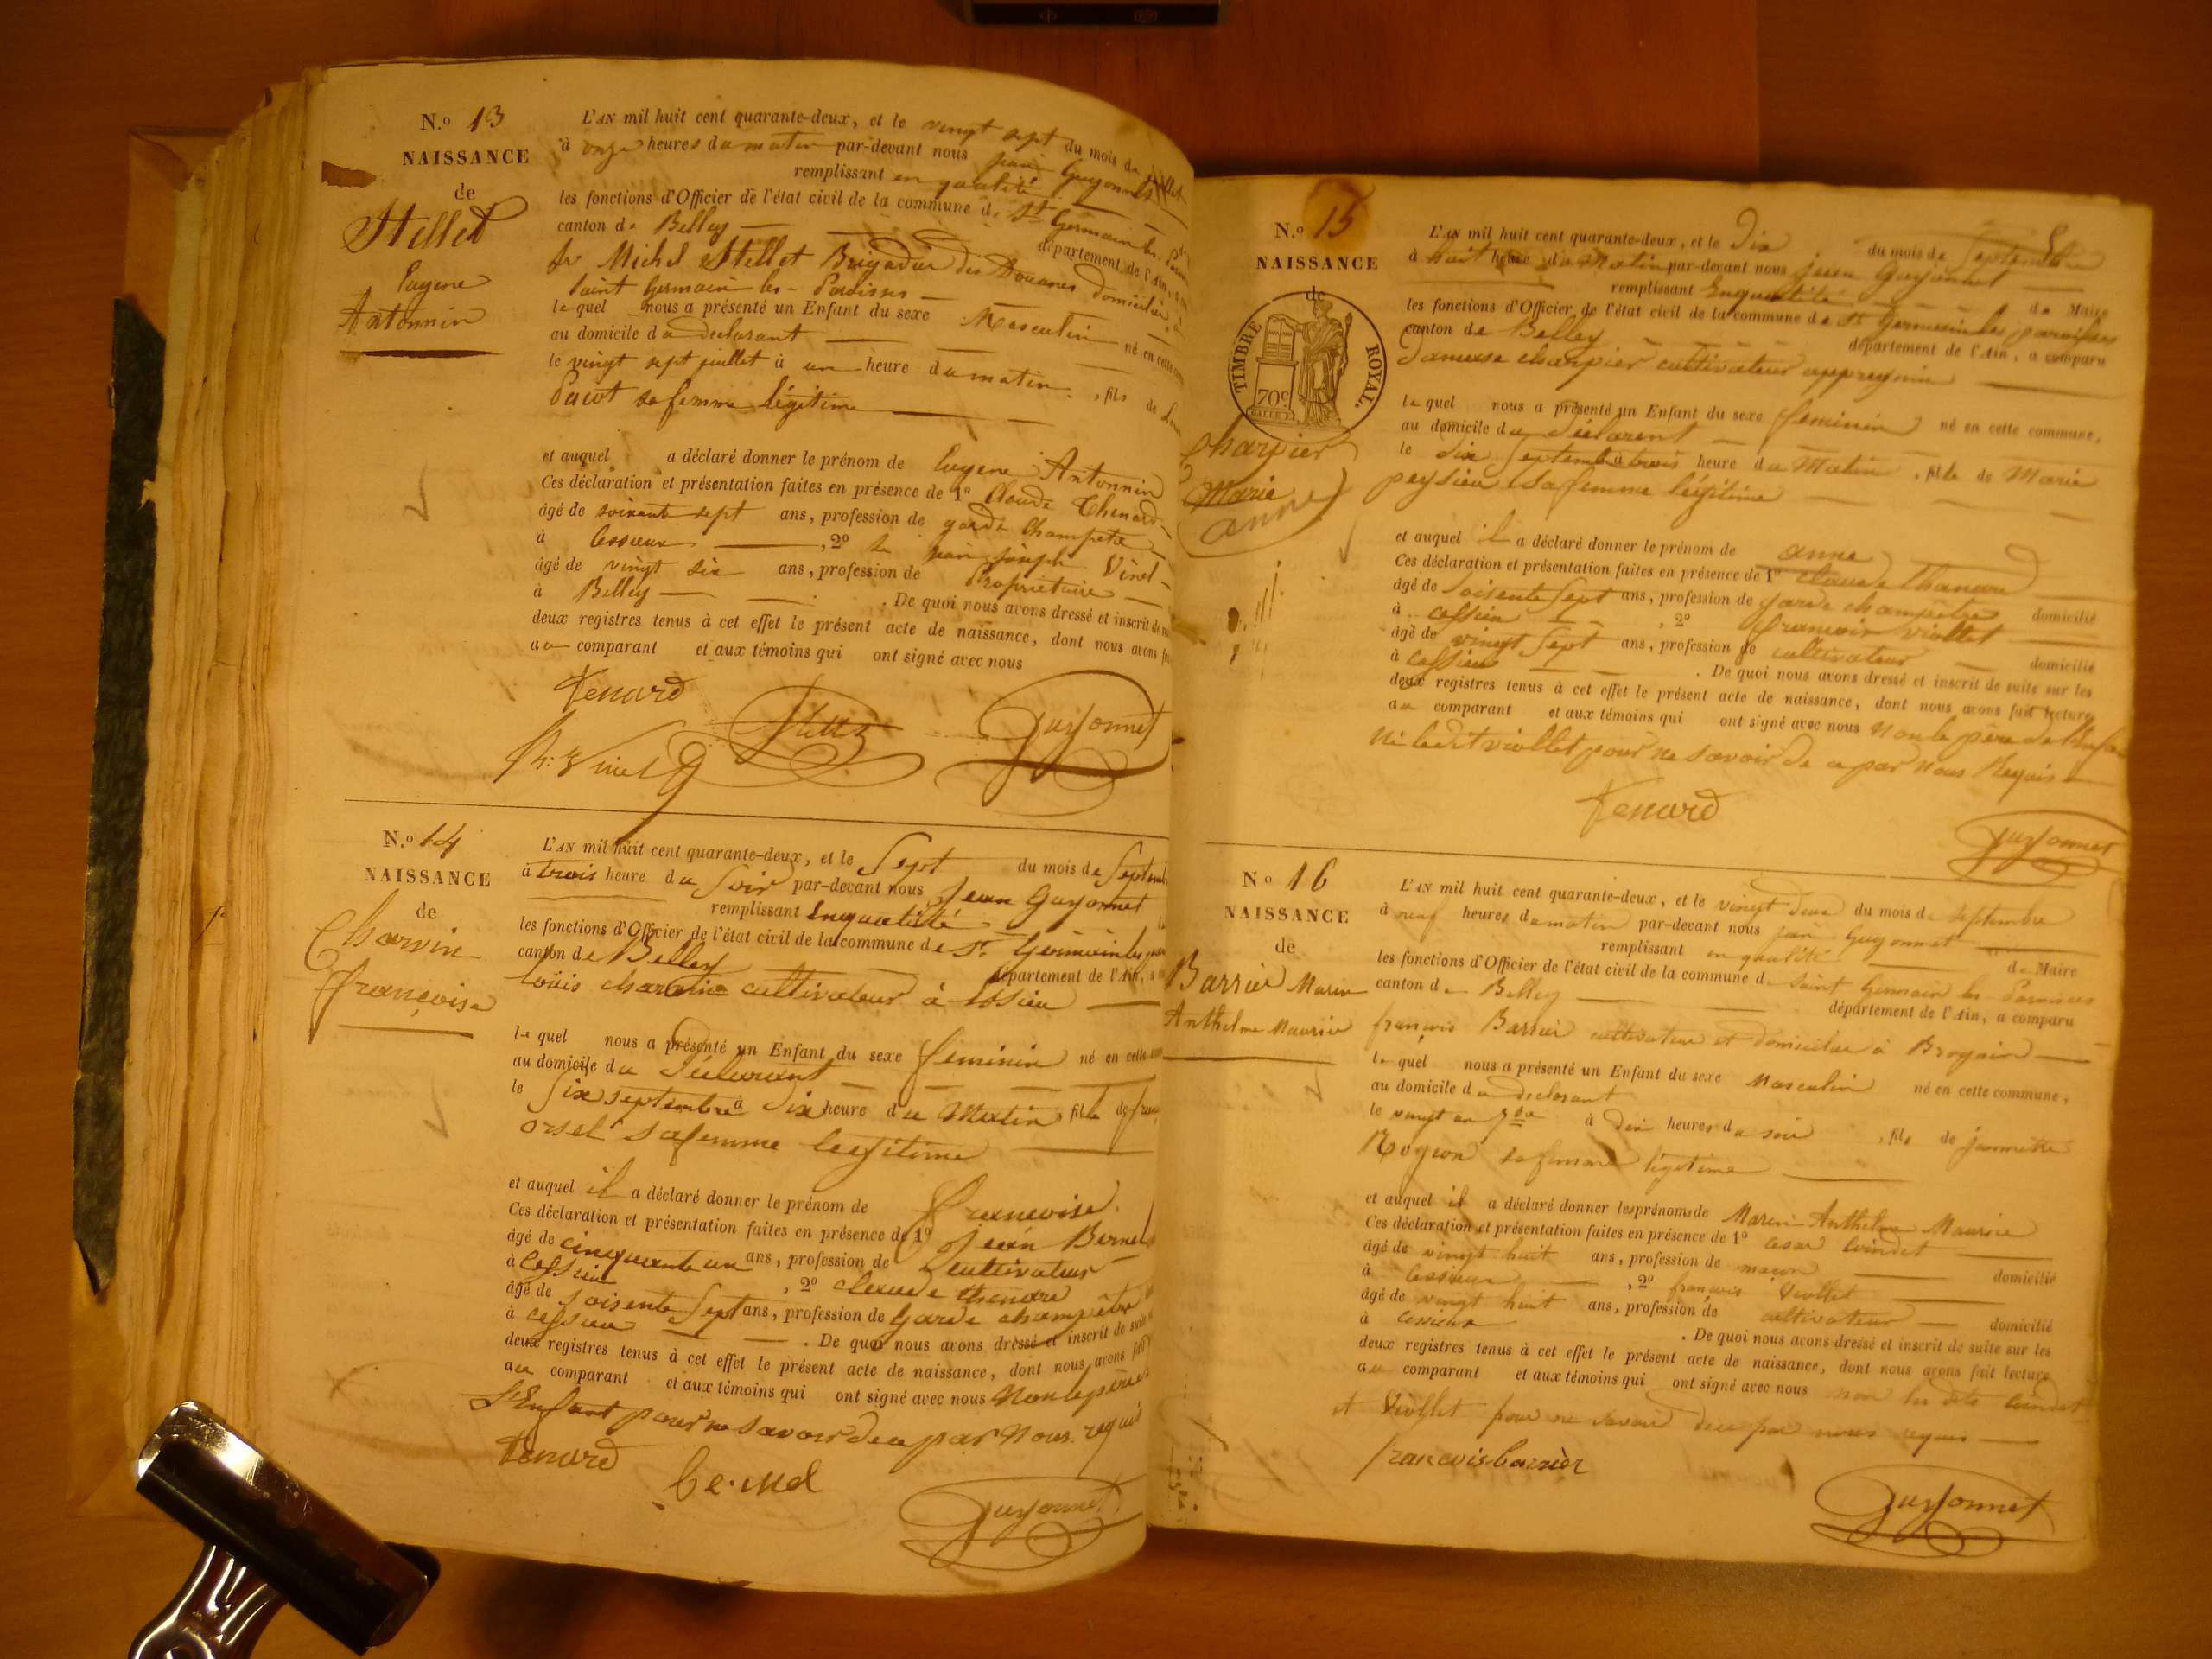 N.o 13
NAISSANCE
de
Stellet
Eugene
Antonnin
L'AN mil huit cent quarante-deux, et le vingt sept du mois de juillet
à onze heures du matin par-devant nous jean Guyonnet
remplissant en qualité
les fonctions d'Officier de l'état civil de la commune de St Germain les
canton de Belley département de l'Ain,
Michel Stellet Brigadier des Douanes domicilié
Saint Germain les Paroisses
lequel nous a présenté un Enfant du sexe Masculin né en cette
au domicile du declarant
le vingt sept juillet à un heure du matin, fils de
sa femme légitime
et auquel a déclaré donner le prénom de Eugene Antonnin
Ces déclaration et présentation faites en présence de 1o Claude Thenard
âgé de soixante sept ans, profession de garde Champetre
à Cessieux, 2o jean joseph Vinet
âgé de vingt six ans, profession de Propriétaire
à Belley. De quoi nous avons dressé et inscrit de
deux registres tenus à cet effet le présent acte de naissance, dont nous avons
au comparant et aux témoins qui ont signé avec nous
Tenard
Guyonnet
N.o 14
NAISSANCE
de
Charvin
françoise
L'AN mil huit cent quarante-deux, et le Sept du mois de Septembre
à trois heure du Soir par-devant nous Jean Guyonnet
remplissant Enqualité
les fonctions d'Officier de l'état civil de la commune de St Germain les
canton de Belley département de l'Ain,
Louis charvin cultivateur à Essieu
lequel nous a présenté un Enfant du sexe feminin né en cette
au domicile du déclarant
le Six septembre à Dix heure du Matin, fille de
orsel sa femme legitime
et auquel il a déclaré donner le prénom de françoise
Ces déclaration et présentation faites en présence de 1o Jean Bernel
âgé de cinquante un ans, profession de cultivateur
à Cessieu, 2o claude thenard
âgé de soisente Sept ans, profession de Garde champêtre
à cessieu. De quoi nous avons dressé et inscrit de suite
deux registres tenus à cet effet le présent acte de naissance, dont nous avons fait
au comparant et aux témoins qui ont signé avec nous Non le père de
L'Enfant pour ne savoir de ce par Nous requis
Tenard
Guyonnet
N.o 15
NAISSANCE
de
TIMBRE ROYAL.
70c
charpier
Marie
anne
L'AN mil huit cent quarante-deux, et le Dix du mois de Septembre
à huit heure du Matin par-devant nous jean Guyonnet
remplissant Enqualité de Maire
les fonctions d'Officier de l'état civil de la commune de St Germain les paroisses
canton de Belley département de l'Ain, a comparu
charpier cultivateur appregnin
lequel nous a présenté un Enfant du sexe feminin né en cette commune,
au domicile du déclarent
le Dix Septemb à trois heure du Matin, fille de Marie
peysieu sa femme légitime
et auquel il a déclaré donner le prénom de anne
Ces déclaration et présentation faites en présence de 1o claude thenard
âgé de Soisente Sept ans, profession de garde champêtre domicilié
à cessieu, 2o francois viollet
âgé de vingt Sept ans, profession de cultivateur domicilié
à cessieu. De quoi nous avons dressé et inscrit de suite sur les
deux registres tenus à cet effet le présent acte de naissance, dont nous avons fait lecture
au comparant et aux témoins qui ont signé avec nous Non le père de
Ni ledit viollet pour ne savoir de ce par nous Requis
Tenard
Guyonnet
No 16
NAISSANCE
de
Barrier Marin
Anthelme Maurice
L'AN mil huit cent quarante-deux, et le vingt deux du mois de septembre
à neuf heures du matin par-devant nous jean Guyonnet
remplissant en qualité de Maire
les fonctions d'Officier de l'état civil de la commune de Saint Germain les Paroisses
canton de Belley département de l'Ain, a comparu
françois Barrier cultivateur et domicilié à Brognin
lequel nous a présenté un Enfant du sexe Masculin né en cette commune,
au domicile du declarant
le vingt un 7bre à dix heures du soir, fils de jeannette
sa femme légitime
et auquel il a déclaré donner les prénoms de Marin Anthelme Maurice
Ces déclaration et présentation faites en présence de 1o Cesar Coindet
âgé de vingt huit ans, profession de maçon domicilié
à Cessieux, 2o françois Viollet
âgé de vingt huit ans, profession de cultivateur domicilié
à Cessieux. De quoi nous avons dressé et inscrit de suite sur les
deux registres tenus à cet effet le présent acte de naissance, dont nous avons fait lecture
au comparant et aux témoins qui ont signé avec nous non les dits Coindet
et Viollet pour ne savoir de ce par nous requis
francois barrièr
Guyonnet